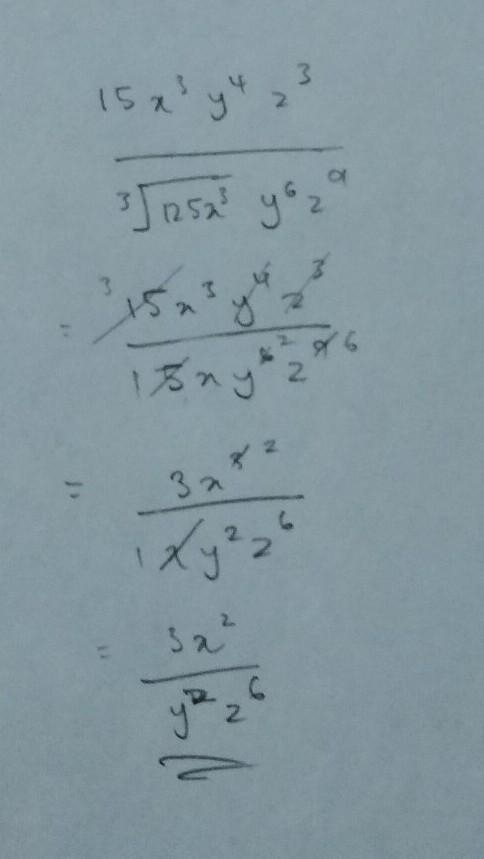 15x³ y⁴ z³
³√125x³ y⁶ z⁹
= ³ 15x³ y⁴ z³
1 5 x y⁶ ² z⁹ ⁶
= 3x³ ²
1 x y² z⁶
= 3x²
y² z⁶